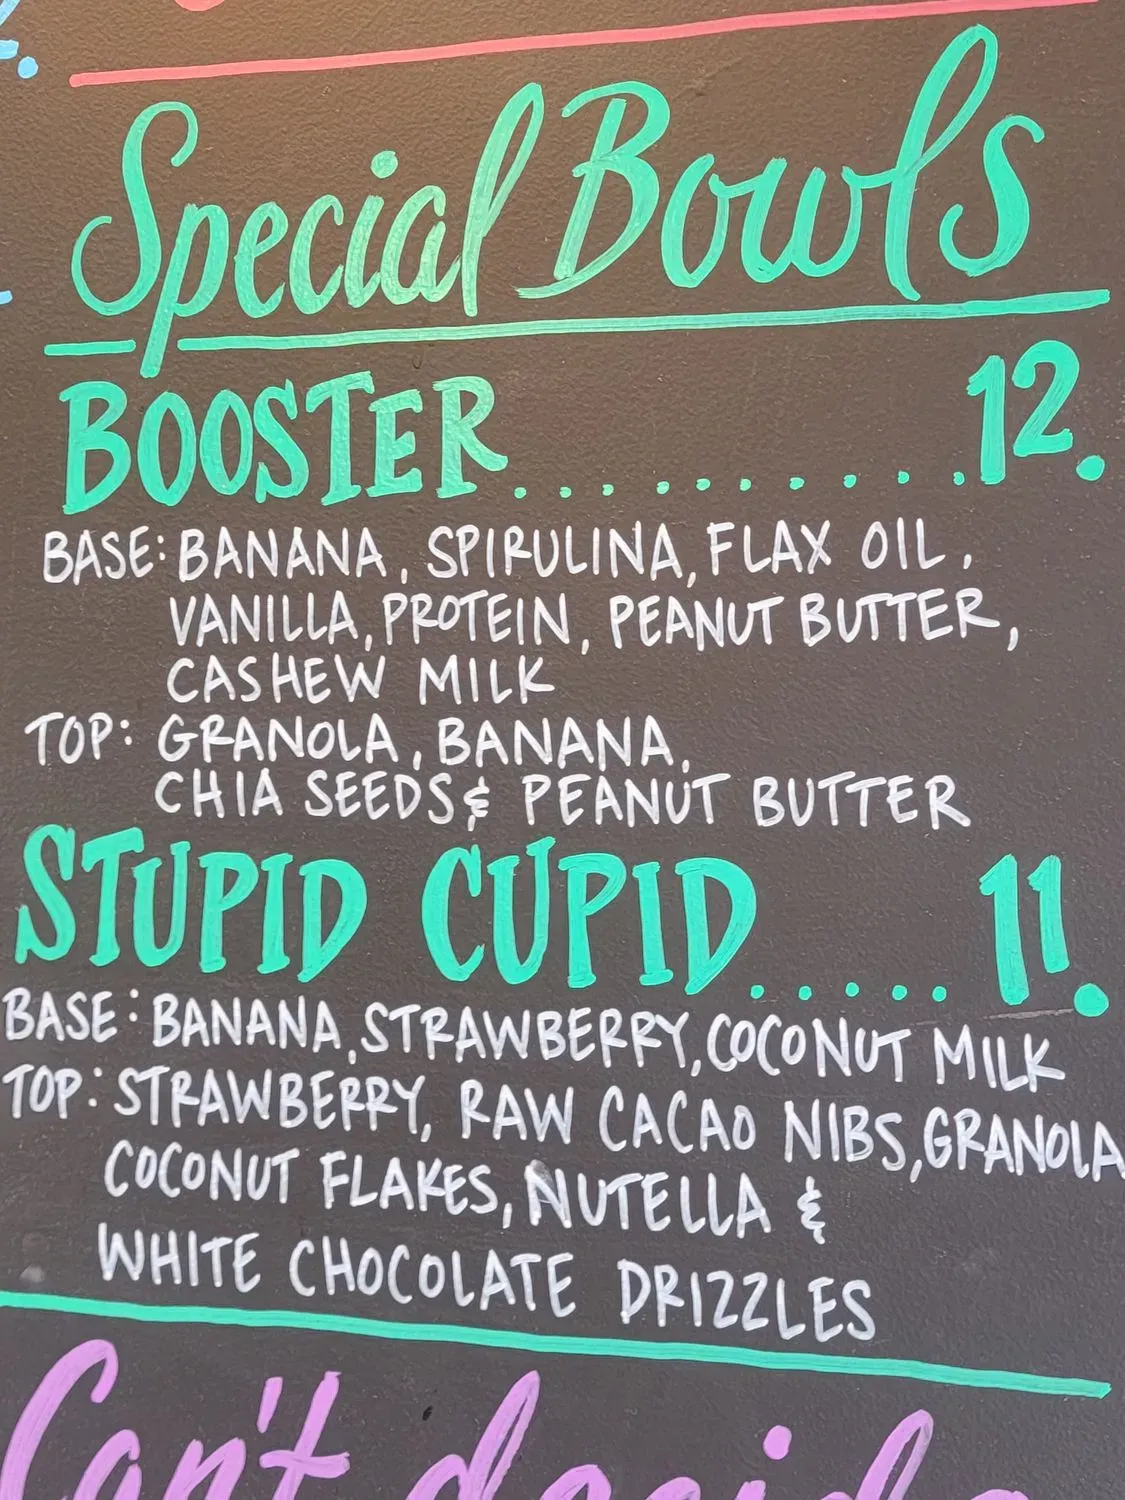 Special Bowls
BOOSTER.........12.
BASE: BANANA, SPIRULINA, FLAX OIL,
VANILLA, PROTEIN, PEANUT BUTTER,
CASHEW MILK
TOP: GRANOLA, BANANA,
CHIA SEEDS & PEANUT BUTTER
STUPID CUPID.....11.
BASE: BANANA, STRAWBERRY, COCONUT MILK
TOP: STRAWBERRY, RAW CACAO NIBS, GRANOLA
COCONUT FLAKES, NUTELLA &
WHITE CHOCOLATE DRIZZLES
Can't decide